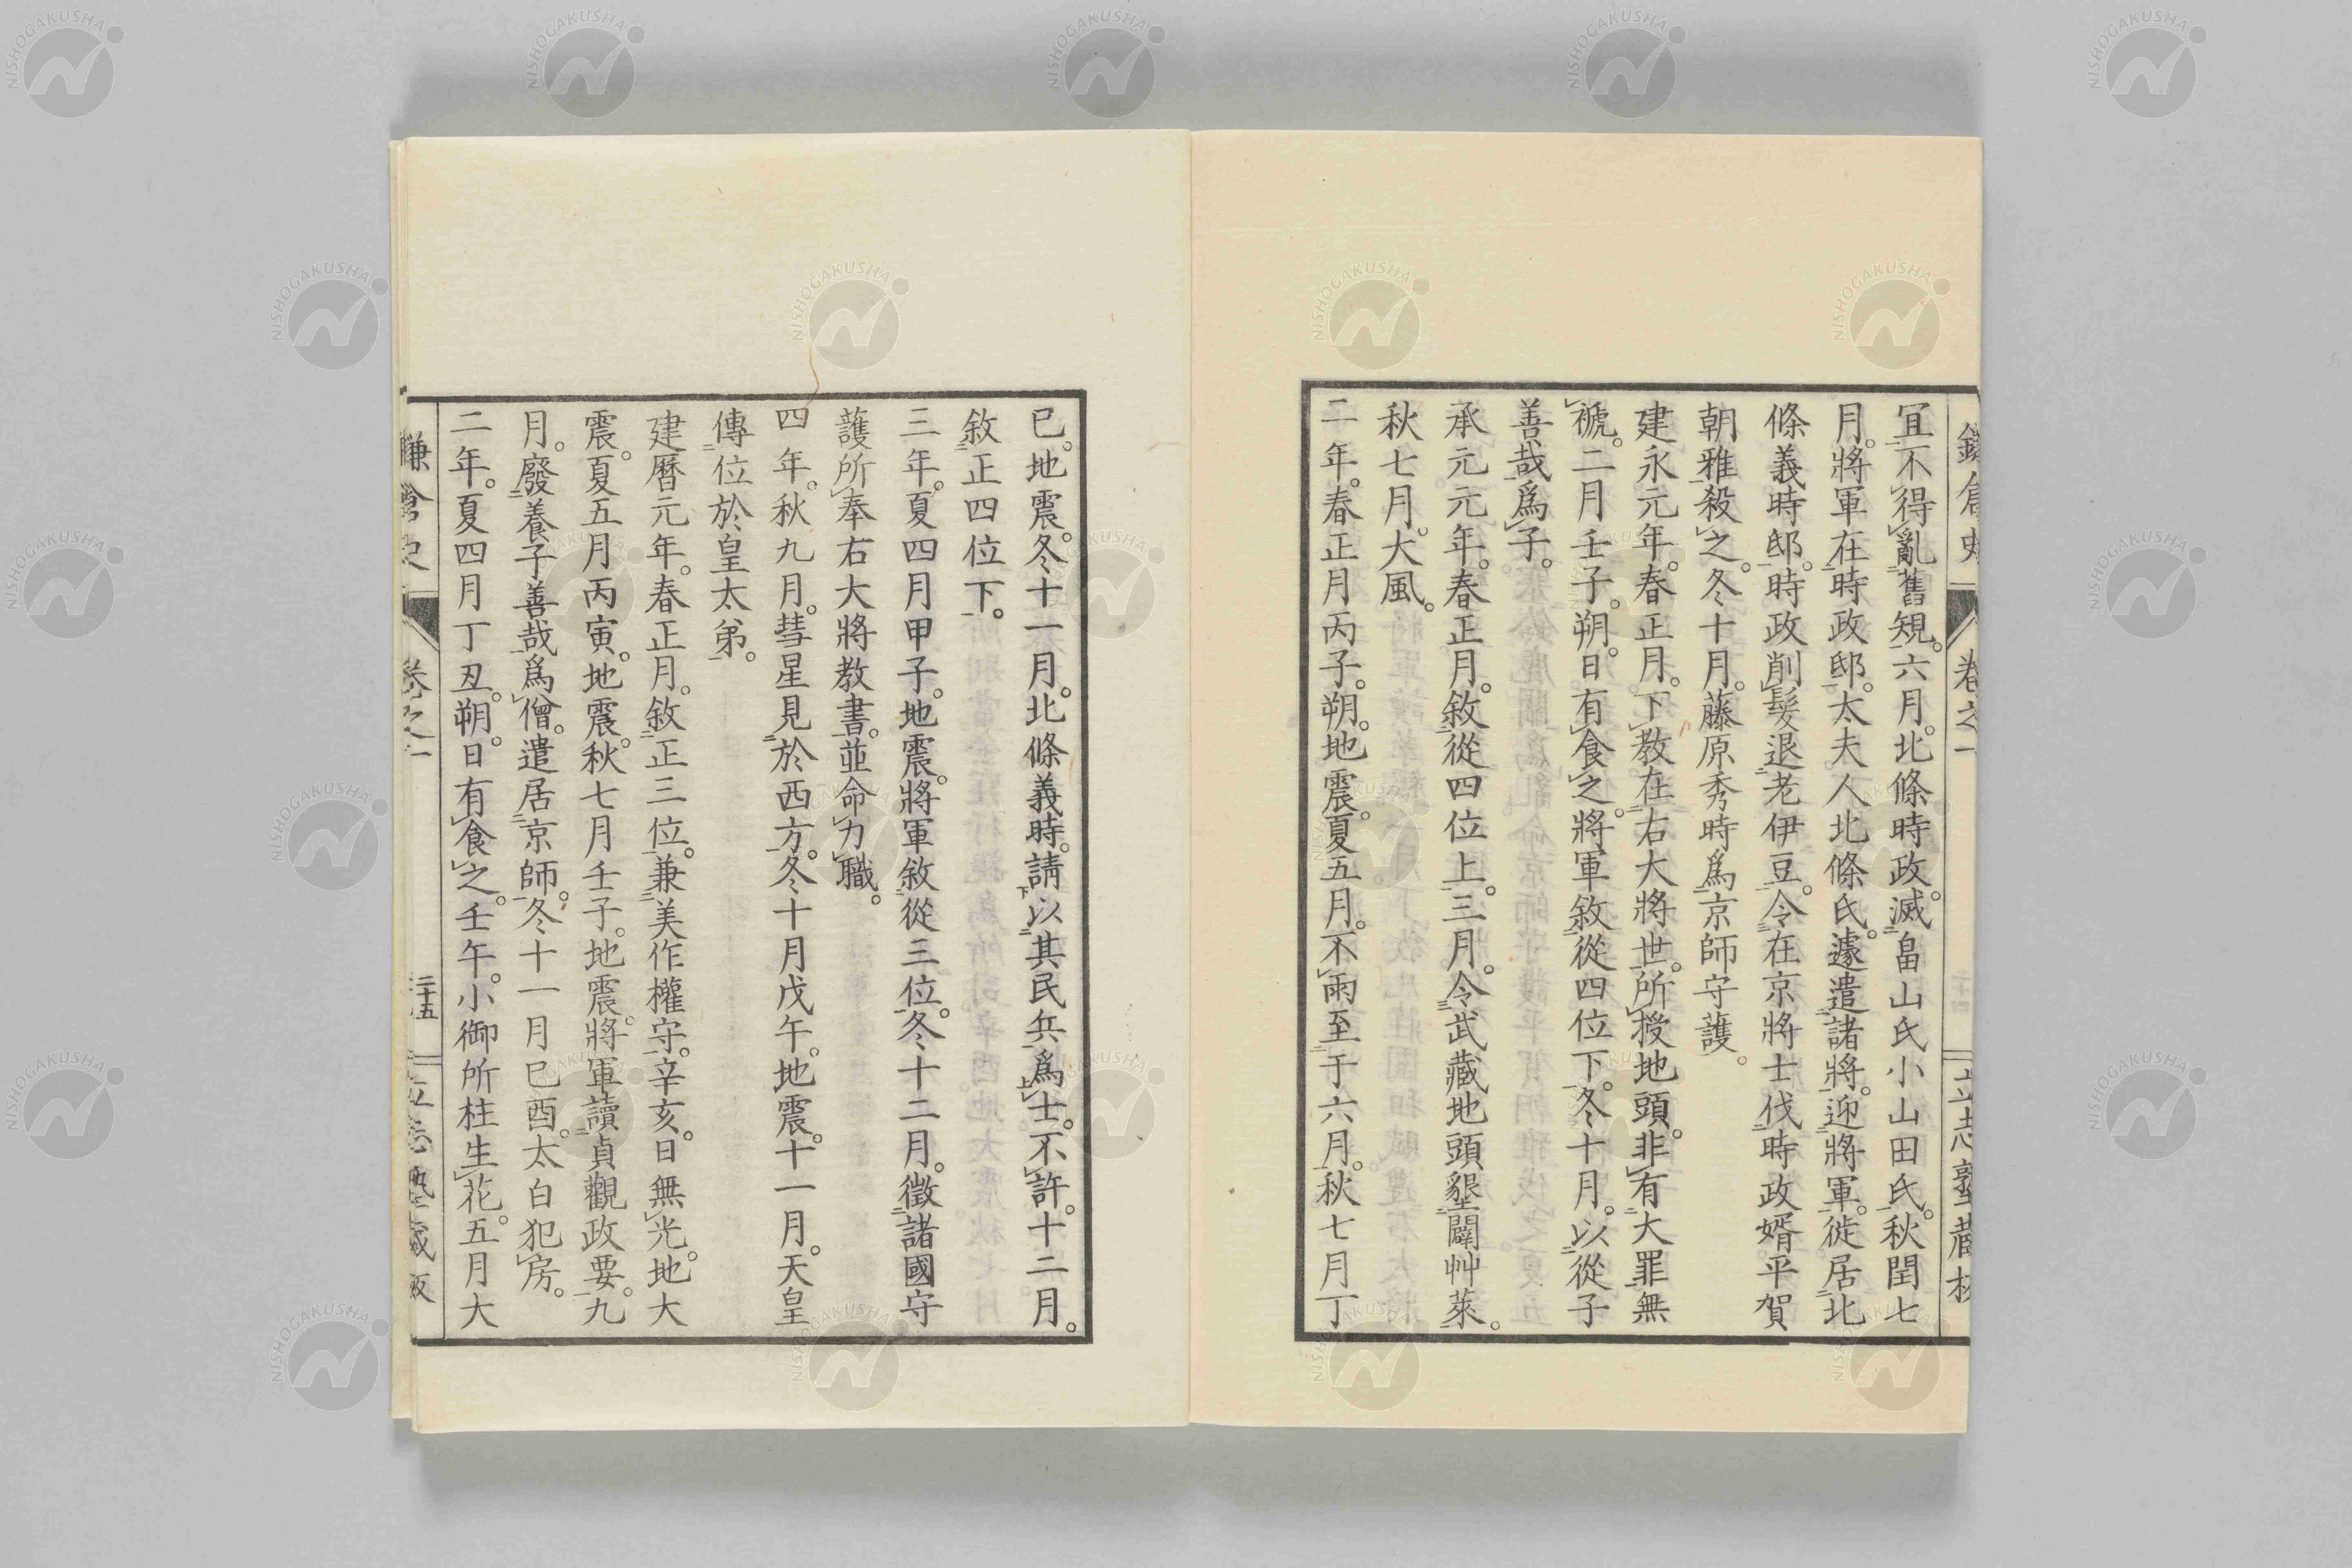 宜不得亂舊規。六月。北條時政。滅畠山氏小山田氏。秋閏七
月。將軍在時政邸。太夫人北條氏。遽遣諸將。迎將軍。徙居北
條義時邸。時政削髮退老伊豆。令在京將士伐時政婿平賀
朝雅殺之。冬十月。藤原秀時爲京師守護。
建永元年。春正月。下教在右大將世。所授地頭。非有大罪無
褫。二月壬子。朔。日有食之。將軍敘從四位下。冬十月。以從子
善哉爲子。
承元元年。春正月。敘從四位上。三月。令武藏地頭墾闢艸萊。
秋七月。大風。
二年。春正月丙子。朔。地震。夏五月。不雨至于六月。秋七月丁
巳。地震。冬十一月。北條義時。請以其民兵爲士。不許。十二月。
敘正四位下。
三年。夏四月甲子。地震。將軍敘從三位。冬十二月。徵諸國守
護所奉右大將教書。並命力職。
四年。秋九月。彗星見於西方。冬十月戊午。地震。十一月。天皇
傳位於皇太弟。
建曆元年。春正月。敘正三位。兼美作權守。辛亥。日無光。地大
震。夏五月丙寅。地震。秋七月壬子。地震。將軍讀貞觀政要。九
月。廢養子善哉爲僧。遣居京師。冬十一月巳酉。太白犯房。
二年。夏四月丁丑。朔。日有食之。壬午。小御所柱生花。五月大
鎌倉史 卷之一 二十五 立志塾藏版
NISHOGAKUSHA